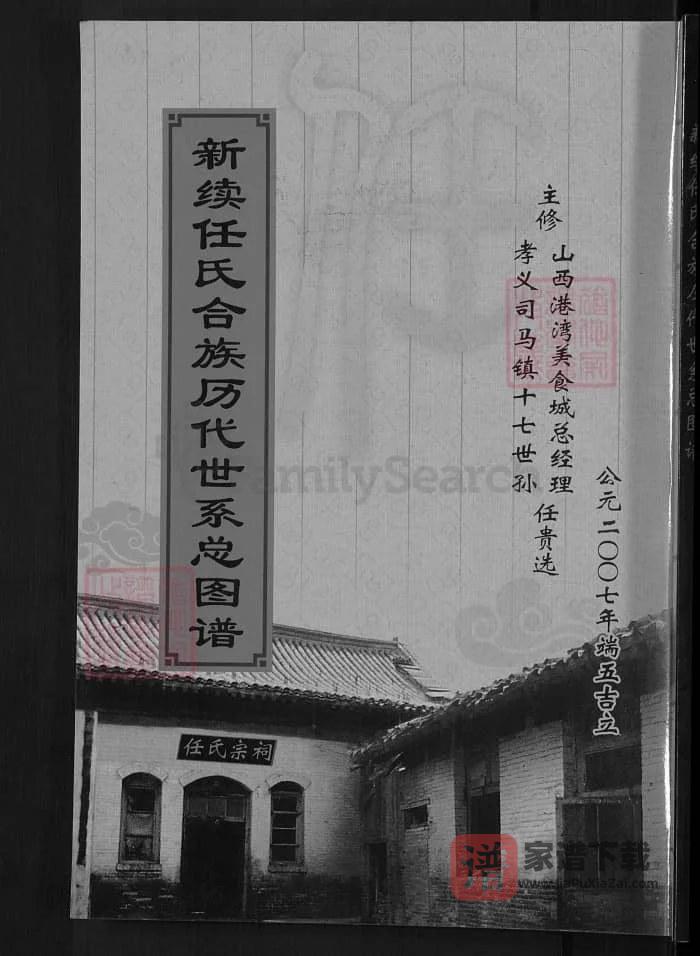 新续任氏合族历代世系总图谱
主修
山西港湾美食城总经理
孝义司马镇十七世孙
任贵选
公元二〇〇七年端五吉立
任氏宗祠
新续任氏合族历代世系总图谱
FamilySearch
谱
家谱下载
www.jiaPuXiaZai.com